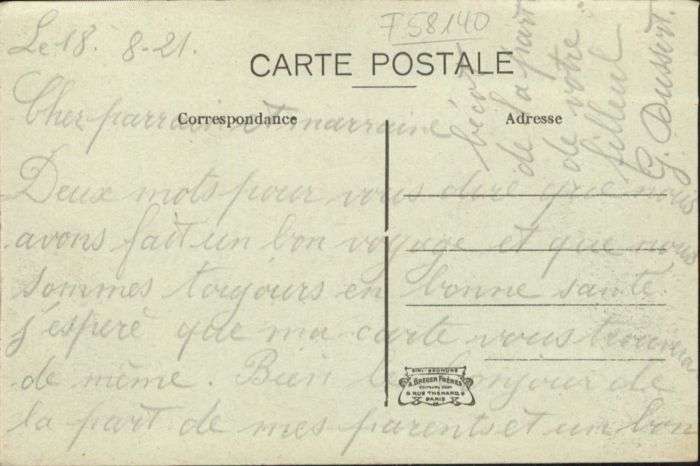 Le 18. 8-21.
F58140
CARTE POSTALE
Correspondance
Adresse
Cher parrain et marraine
Deux mots pour vous dire que nous
avons fait un bon voyage et que nous
sommes toujours en bonne santé.
J'espère que ma carte vous trouvera
de même. Bien le bonjour de
la part de mes parents et un bon
bécot
de la part
de votre
filleul
G. Dussert.
SIMI-BROMURE
A. BREGER FRÈRES
9 RUE THÉNARD 9
PARIS